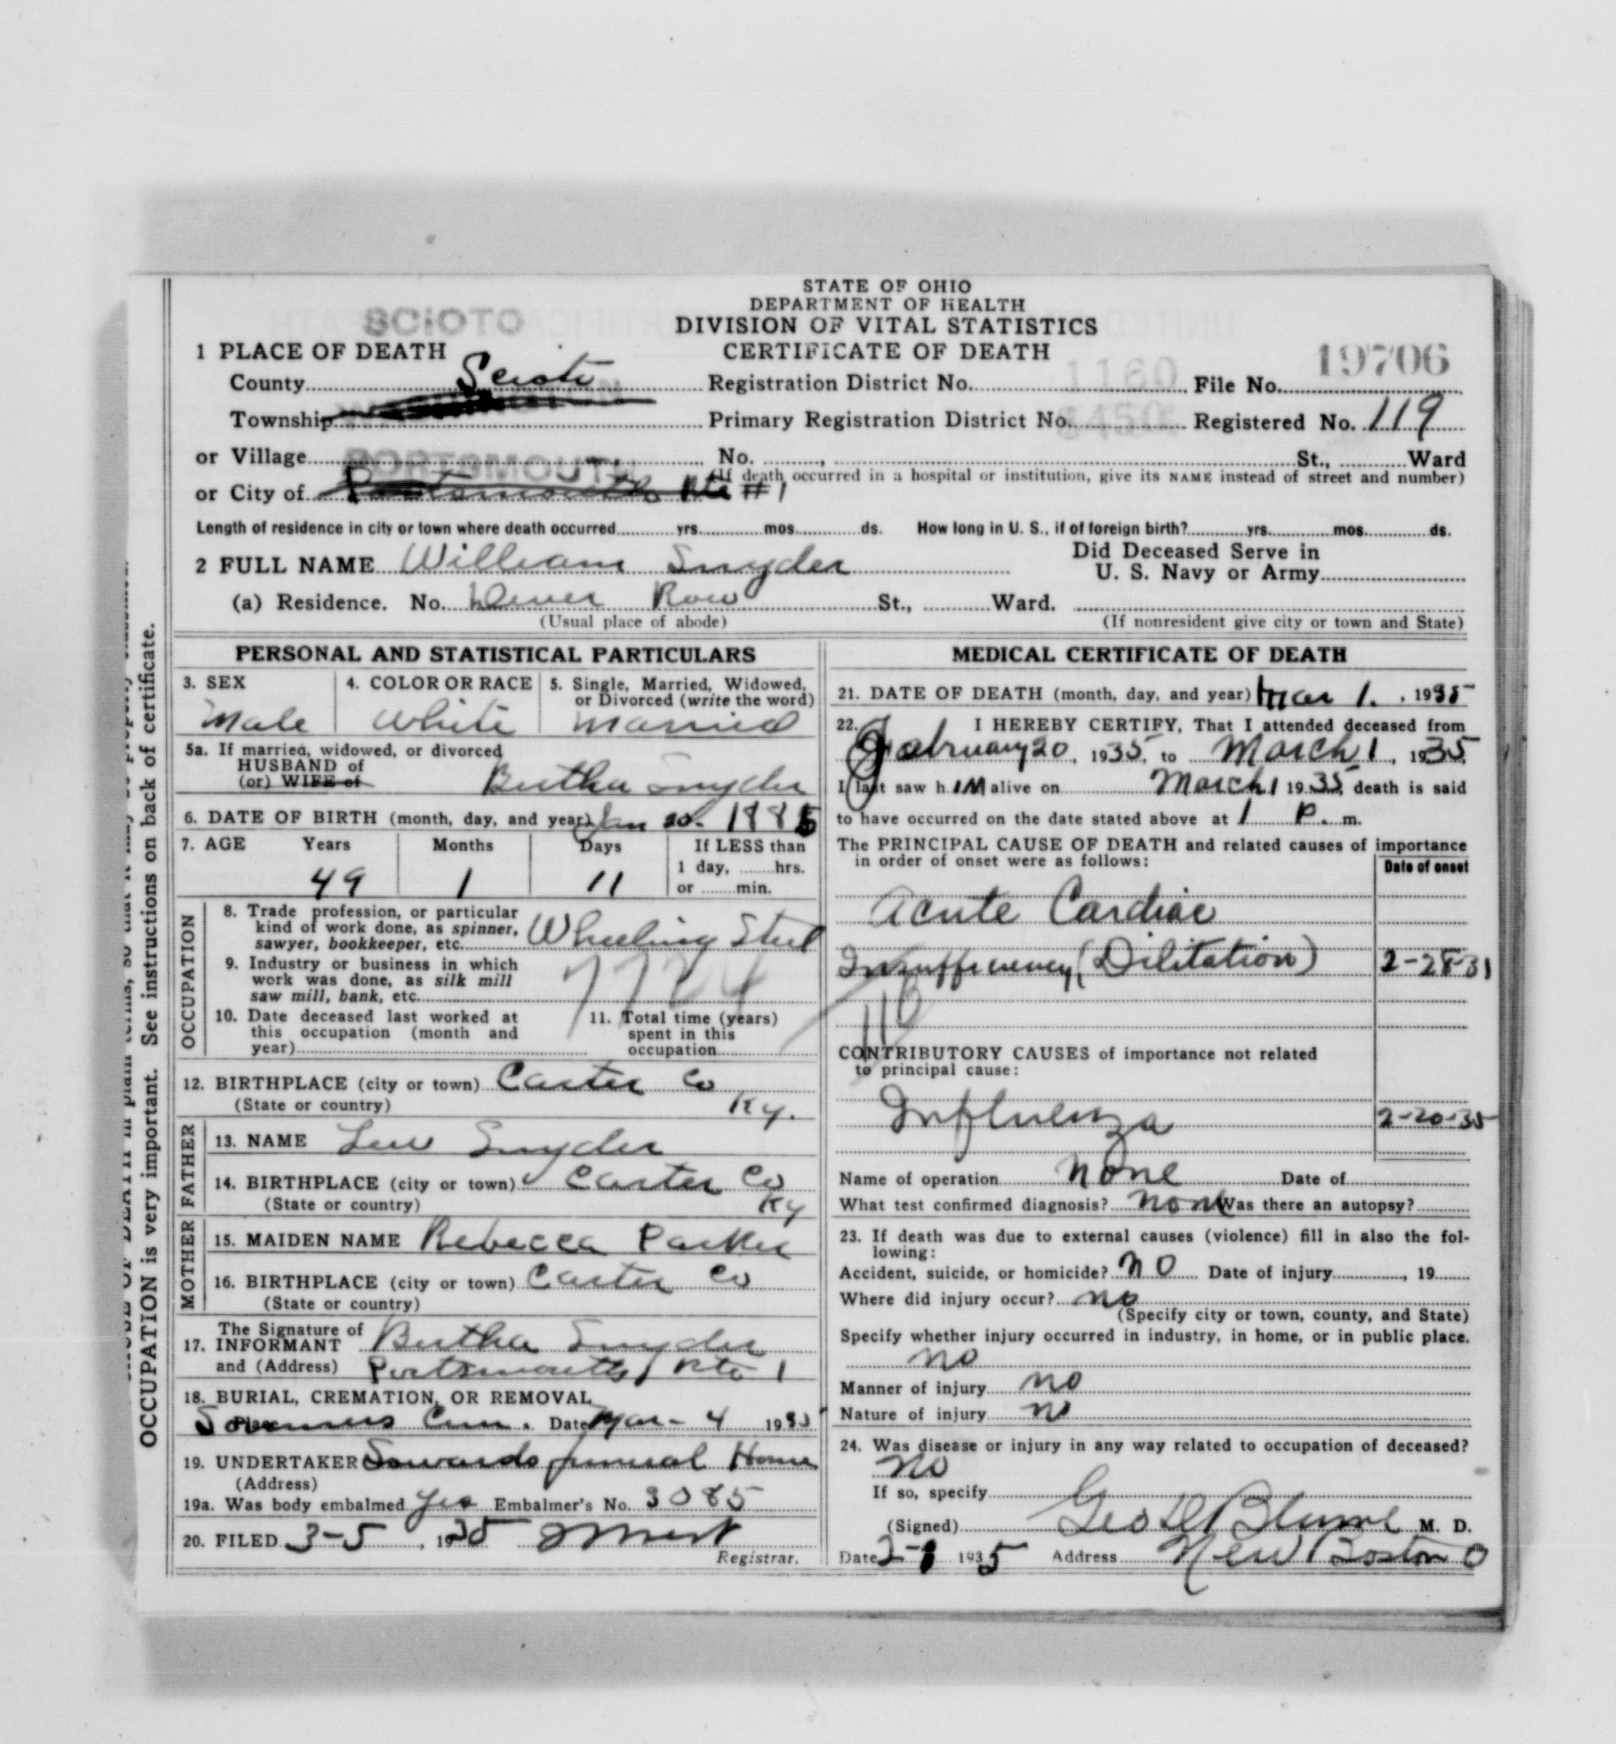 STATE OF OHIO
DEPARTMENT OF HEALTH
DIVISION OF VITAL STATISTICS
CERTIFICATE OF DEATH
SCIOTO
1 PLACE OF DEATH
19706
County Scioto Registration District No. 1160 File No.
Township Primary Registration District No. 8450 Registered No. 119
PORTSMOUTH
or Village No. , St., Ward
(If death occurred in a hospital or institution, give its NAME instead of street and number)
or City of Portsmouth Rte #1
Length of residence in city or town where death occurred yrs. mos. ds. How long in U. S., if of foreign birth? yrs. mos. ds.
2 FULL NAME William Snyder Did Deceased Serve in
U. S. Navy or Army
(a) Residence. No. Row St., Ward.
(Usual place of abode) (If nonresident give city or town and State)
PERSONAL AND STATISTICAL PARTICULARS
3. SEX 4. COLOR OR RACE 5. Single, Married, Widowed,
or Divorced (write the word)
Male White Married
5a. If married, widowed, or divorced
HUSBAND of
(or) WIFE of Bertha Snyder
6. DATE OF BIRTH (month, day, and year) Jan 20. 1885
7. AGE Years Months Days If LESS than
1 day, hrs.
49 1 11 or min.
OCCUPATION
8. Trade profession, or particular
kind of work done, as spinner,
sawyer, bookkeeper, etc. Wheeling Steel
9. Industry or business in which
work was done, as silk mill
saw mill, bank, etc. 7724
10. Date deceased last worked at
this occupation (month and
year)
11. Total time (years)
spent in this
occupation
12. BIRTHPLACE (city or town) Carter Co
(State or country) Ky.
FATHER
13. NAME Lew Snyder
14. BIRTHPLACE (city or town) Carter Co
(State or country) Ky
MOTHER
15. MAIDEN NAME Rebecca Parker
16. BIRTHPLACE (city or town) Carter Co
(State or country)
The Signature of
17. INFORMANT Bertha Snyder
and (Address) Portsmouth Rte 1
18. BURIAL, CREMATION, OR REMOVAL
Place Cem. Date Mar - 4 1935
19. UNDERTAKER Sowards funeral Home
(Address)
19a. Was body embalmed Yes Embalmer's No. 3085
20. FILED 3-5, 1935
Registrar.
MEDICAL CERTIFICATE OF DEATH
21. DATE OF DEATH (month, day, and year) Mar 1. , 1935
22. I HEREBY CERTIFY, That I attended deceased from
February 20, 1935, to March 1, 1935,
I last saw h im alive on March 1 1935, death is said
to have occurred on the date stated above at 1 P. m.
The PRINCIPAL CAUSE OF DEATH and related causes of importance
in order of onset were as follows:
Date of onset
Acute Cardiac
Insufficiency (Dilitation) 2-28-31
CONTRIBUTORY CAUSES of importance not related
to principal cause:
Influenza 2-20-35
Name of operation none Date of
What test confirmed diagnosis? none Was there an autopsy?
23. If death was due to external causes (violence) fill in also the fol-
lowing:
Accident, suicide, or homicide? no Date of injury , 19
Where did injury occur? no
(Specify city or town, county, and State)
Specify whether injury occurred in industry, in home, or in public place.
no
Manner of injury no
Nature of injury no
24. Was disease or injury in any way related to occupation of deceased?
no
If so, specify
(Signed) Geo D Blume M. D.
Date 1935 Address New Boston O
OCCUPATION is very important. See instructions on back of certificate.